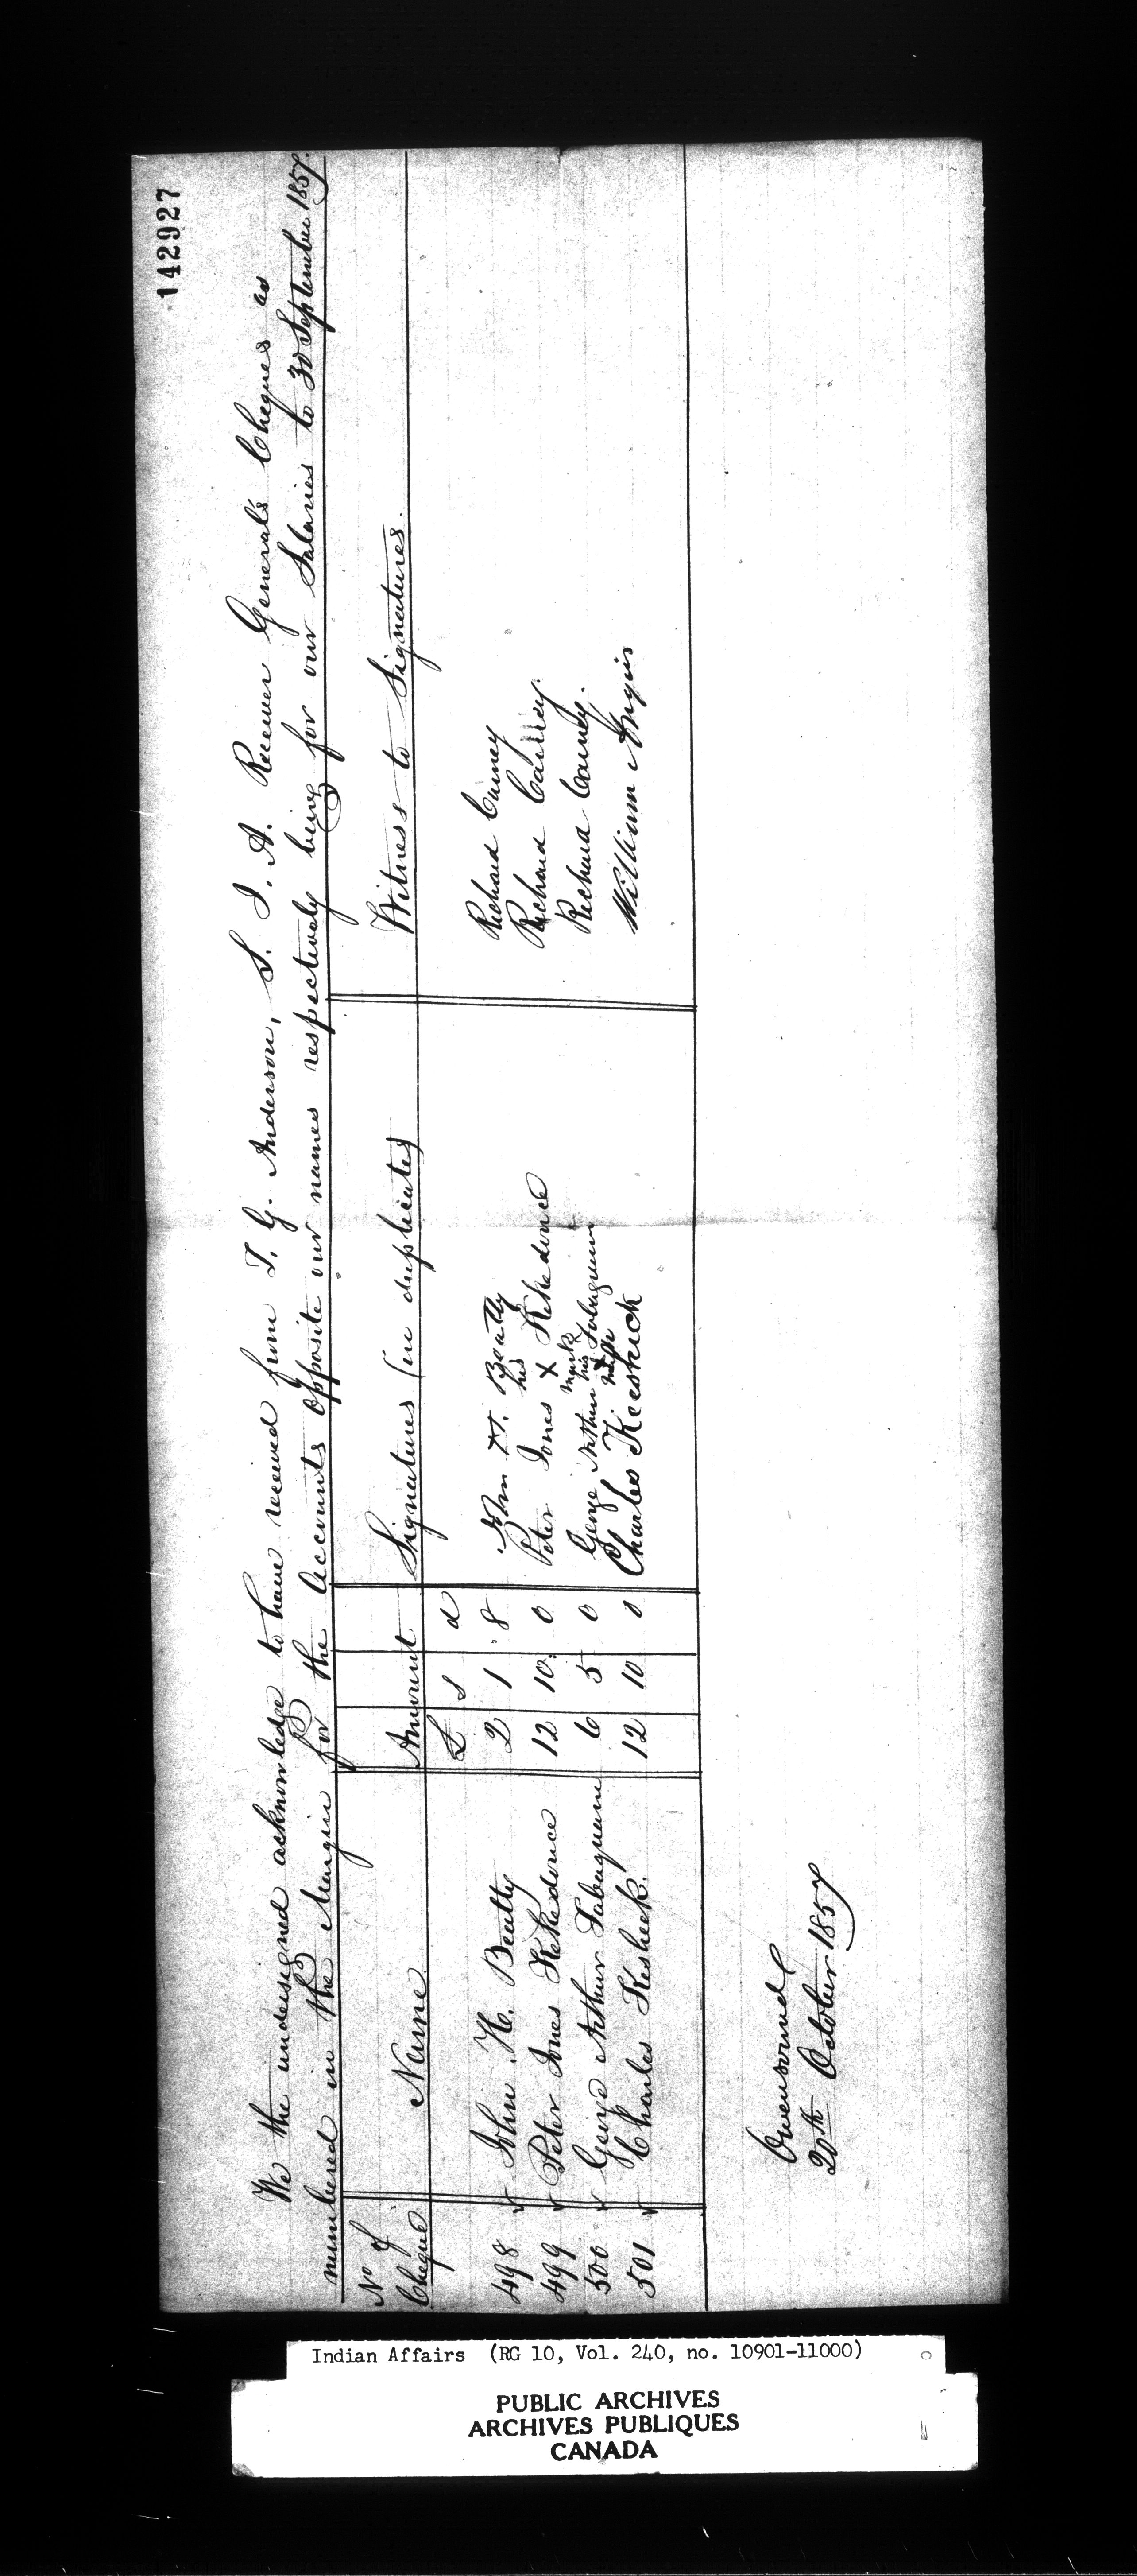 142927
We the undersigned acknowledge to have received from T. G. Anderson, S. I. A. Receiver General's Cheques as
numbered in the Margin for the Accounts opposite our names respectively being for our Salaries to 30 September 1857.
No of Cheque Name Amount Signatures (in duplicate) Witness to Signatures.
£ s d
498 John H. Beatty 2 1 8 John H. Beatty Richard Carney
499 Peter Jones Kekedonce 12 10 0 Peter Jones his X mark Kekedonce Richard Carney
500 George Arthur Tabequam 6 5 0 George Arthur his X mark Tabequam Richard Carney.
501 Charles Kesheek. 12 10 0 Charles Keeshick William Angus
Owensound
20th October 1857
Indian Affairs (RG 10, Vol. 240, no. 10901-11000)
PUBLIC ARCHIVES
ARCHIVES PUBLIQUES
CANADA